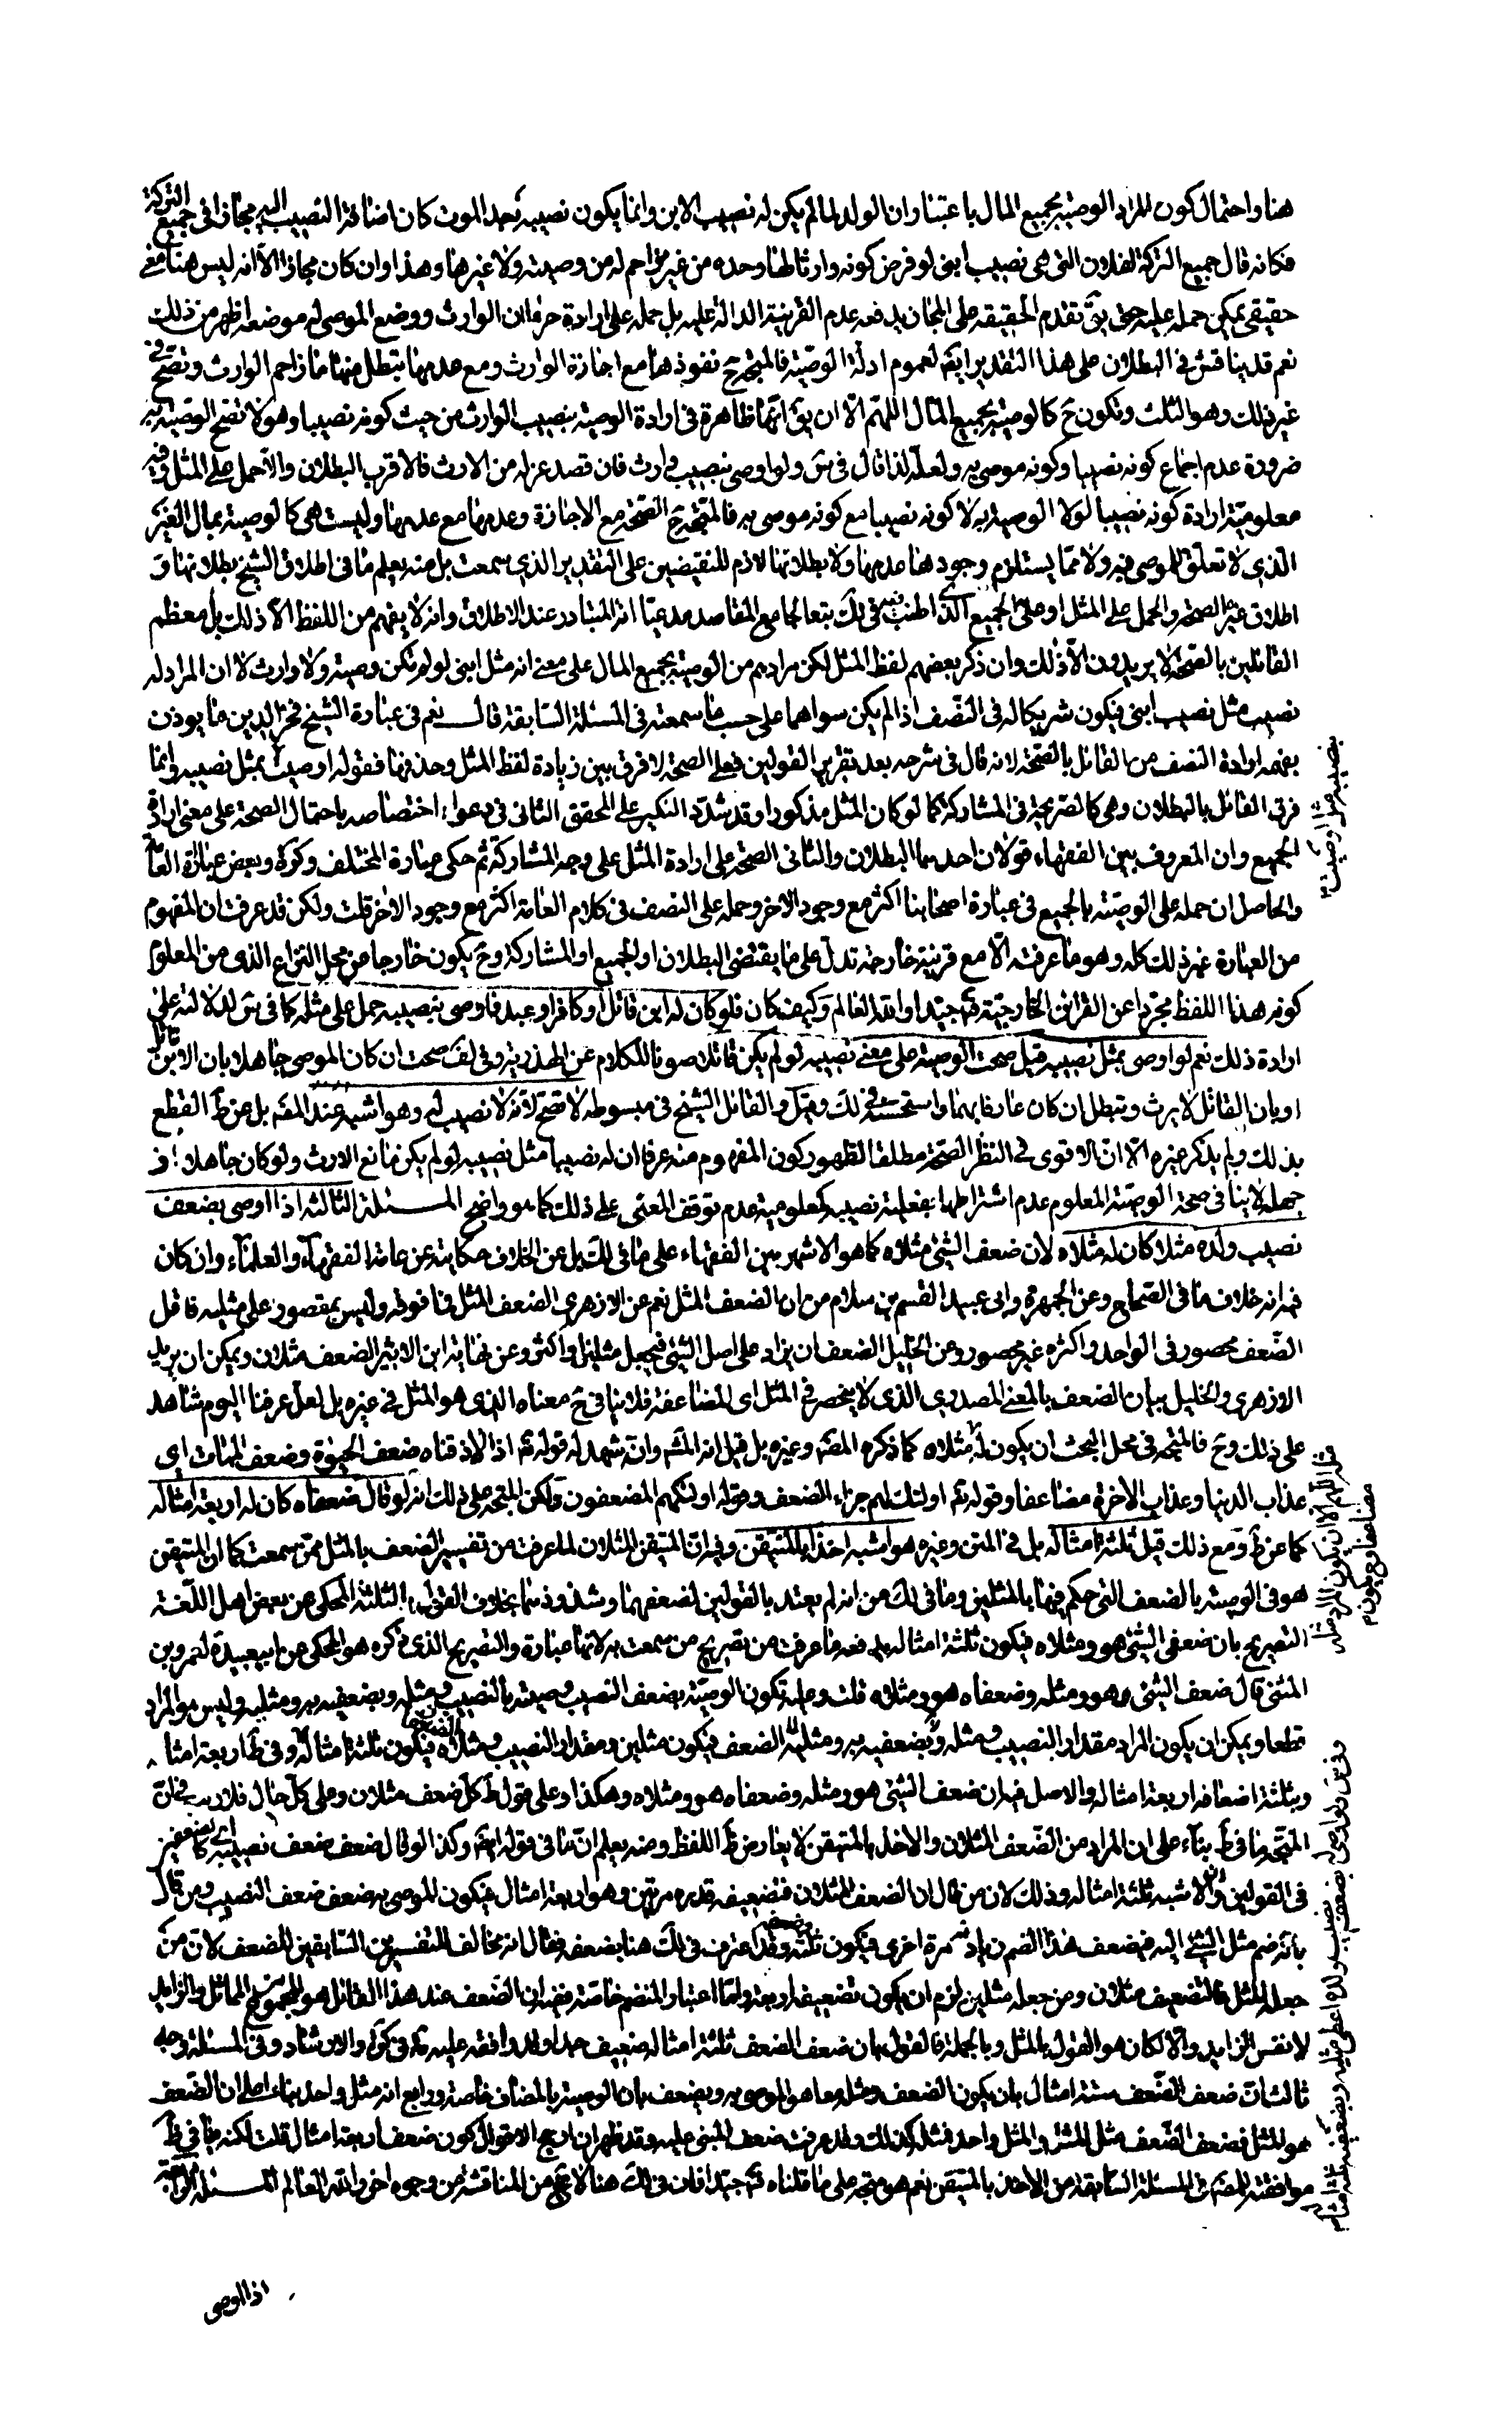 هنا واحتمال كون المراد الوصية بجميع المال باعتبار ان الولد لما لم يكن له نصيب الابن وانما يكون نصيبه بعد الموت كان اضافة النصيب اليه مجازا في جميع التركة
فكانه قال جميع التركة لفلان التي هي نصيب ابني لو فرض كونه وارثا لها وحده من غير مزاحم له من وصية ولا غيرها وهذا وان كان مجازا الا انه ليس هنا معنى
حقيقي يمكن حمله عليه حتى يق تقدم الحقيقة على المجاز يدفعه عدم القرينة الدالة عليه بل حمله على ارادة حرمان الوارث ووضع الموصى له موضعه اظهر من ذلك
نعم قد يناقش في البطلان على هذا التقدير ايضا لعموم ادلة الوصية فالمتجه ح نفوذها مع اجازة الوارث ومع عدمها يبطل منها ما زاحم الوارث وتصح في
غير ذلك وهو الثلث وتكون ح كالوصية بجميع المال اللهم الا ان يق انها ظاهرة في ارادة الوصية بنصيب الوارث من حيث كونه نصيبا وهو لا تصح الوصية به
ضرورة عدم اجتماع كونه نصيبا وكونه موصى به ولعله لذا قال في س ولو اوصى بنصيب وارث فان قصد عزله من الارث فالاقرب البطلان والا حمل على المثل وفيه
معلومية ارادة كونه نصيبا لولا الوصية به لا كونه نصيبا مع كونه موصى به فالمتجه ح الصحة مع الاجازة وعدمها مع عدمها وليست هي كالوصية بمال الغير
الذي لا تعلق للموصي فيه ولا مما يستلزم وجودها عدمها ولا بطلانها لازم للنقيضين على التقدير الذي سمعت بل منه يعلم ما في اطلاق الشيخ بطلانها و
اطلاق غيره الصحة والحمل على المثل او على الجميع الذي اطنب في لك تبعا لجامع المقاصد مدعيا انه المتبادر عند الاطلاق وانه لا يفهم من اللفظ الا ذلك بل معظم
القائلين بالصحة لا يريدون الا ذلك وان ذكر بعضهم لفظ المثل لكن مرادهم من الوصية بجميع المال على معنى انه مثل ابني لو لم تكن وصية ولا وارث لا ان المراد له
نصيب مثل نصيب ابني فيكون شريكا له في النصف اذا لم يكن سواهما على حسب ما سمعته في المسئلة السابقة قال نعم في عبارة الشيخ فخر الدين ما يوذن
بفهمه ارادة النصف من القائل بالصحة لانه قال في شرحه بعد تقرير القولين فعلى الصحة لا فرق بين زيادة لفظ المثل وحذفها فقوله اوصيت بمثل نصيبه وانما
فرق القائل بالبطلان وهي كالصريحة في المشاركة كما لو كان المثل مذكورا وقد شدد النكير على المحقق الثاني في دعواه اختصاصه باحتمال الصحة على معنى ارادة
الجميع وان المعروف بين الفقهاء قولان احدهما البطلان والثاني الصحة على ارادة المثل على وجه المشاركة ثم حكى عبارة المختلف وكره وبعض عبارات العامة
والحاصل ان حمله على الوصية بالجميع في عبارة اصحابنا اكثر مع وجود الاخر وحمله على النصف في كلام العامة اكثر مع وجود الاخر قلت ولكن قد عرفت ان المفهوم
من العبارة غير ذلك كله وهو ما عرفته الا مع قرينة خارجة تدل على ما يقتضي البطلان او الجميع او المشاركة وح يكون خارجا من محل النزاع الذي من المعلوم
كونه هذا اللفظ مجردا عن القرائن الخارجية فتم جيدا والله العالم وكيف كان فلو كان له ابن قاتل او كافر او عبد فاوصى بنصيبه حمل على مثله كما في س لدلالته على
ارادة ذلك نعم لو اوصى بمثل نصيبه قيل صحت الوصية على معنى نصيبه لو لم يكن قاتلا صونا للكلام عن الهذرية وفي لف صحت ان كان الموصي جاهلا بان الابن قاتل
او بان القاتل لا يرث وتبطل ان كان عارفا بهما واستحسنه في لك وقيل والقائل الشيخ في مبسوطه لا تصح لانه لا نصيب له وهو اشبه عند المصَ بل عن ظ القطع
بذلك ولم يذكر غيره الا ان الاقوى في النظر الصحة مطلقا لظهور كون المفهوم منه عرفا ان له نصيبا مثل نصيبه لو لم يكن مانع الارث ولو كان جاهلا اذ
جهله لا ينافي صحة الوصية المعلوم عدم اشتراطها بفعلية نصيبه كمعلومية عدم توقف المعنى على ذلك كما هو واضح المسئلة الثالثة اذا اوصى بضعف
نصيب ولده مثلا كان له مثلاه لان ضعف الشئ مثلاه كما هو الاشهر بين الفقهاء على ما في لك بل عن الخلاف حكايته عن عامة الفقهاء والعلماء وان كان
فيه انه خلاف ما في الصحاح وعن الجمهرة وابي عبيد القسم بن سلام من ان الضعف المثل نعم عن الازهري الضعف المثل فما فوقه وليس بمقصور على مثليه فاقل
الضعف محصور في الواحد واكثره غير محصور وعن الخليل الضعف ان يزاد على اصل الشئ فيجعل مثلين واكثر وعن نهاية ابن الاثير الضعف مثلان ويمكن ان يريد
الازهري والخليل بيان الضعف بالمعنى المصدري الذي لا يخصر في المثل اي المضاعفة فلا ينافي ح معناه الذي هو المثل في غيره بل لعل عرفنا اليوم شاهد
على ذلك وح فالمتجه في محل البحث ان يكون له مثلاه كما ذكره المصَ وغيره بل قيل انه المشَ وانه شهد له قوله تم اذا لاذقناه ضعف الحيوة وضعف الممات اي
عذاب الدنيا وعذاب الاخرة مضاعفا وقوله تم اولئك لهم جزاء الضعف وقوله اولئكهم المضعفون ولكن المتجه على ذلك انه لو قال ضعفاه كان له اربعة امثاله
كما عن ظ ومع ذلك قيل ثلثة امثاله بل في المتن وغيره هو اشبه اخذا بالمتيقن وفيه ان المتيقن المثلان لما عرفت من تفسير الضعف بالمثل ممن سمعت كما ان المتيقن
هو في الوصية بالضعف التي حكم فيها بالمثلين وما في لك من انه لم يعتد بالقولين لضعفهما وشذوذهما بخلاف القول بالثلثة المحكي عن بعض اهل اللغة
التصريح بان ضعفي الشئ هو ومثلاه فيكون ثلثة امثاله يدفعه ما عرفت من تصريح من سمعت به لانها عبارة والتصريح الذي ذكره هو المحكي عن ابيعبيدة لمعمر بن
المثنى قال ضعف الشئ هو ومثله وضعفاه هو ومثلاه قلت وعليه تكون الوصية بضعف النصيب وصية بالنصيب ومثله وبضعفيه به ومثليه وليس هو المراد
قطعا ويمكن ان يكون المراد مقدار النصيب ومثله وبضعفيه به ومثليه الضعف فيكون مثلين ومقدار النصيب ومثلاه فيكون ثلثة امثاله وفي ظ اربعة امثا
وبثلثة اضعافه اربعة امثاله والاصل فيه ان ضعف الشئ هو ومثله وضعفاه هو ومثلاه وهكذا وعلى قول ظ كل ضعف مثلان وعلى كل حال فلا ريب في ان
المتجه ما في ظ بناء على ان المراد من الضعف المثلان والاخذ بالمتيقن لا يعارض ظ اللفظ ومنه يعلم ان ما في قوله ايضا وكذا لو قال ضعف ضعف نصيبه كما
في القولين وان الاشبه ثلثة امثاله وذلك لان من قال ان الضعف المثلان فتضعيفه قدره مرتين وهو اربعة امثال فيكون الموصى به ضعف ضعف النصيب ومن قال
بانه ضم مثل الشئ اليه فضعف هذا الضم زيادته مرة اخرى فيكون ثلثة وقد اعترف في لك هنا بضعفه فقال انه مخالف للتفسيرين السابقين للضعف لان من
جعله المثل فالتضعيف مثلان ومن جعله مثلين لزم ان يكون تضعيفه اربعة واما اعتبار المنضم خاصة ففيه ان الضعف عند هذا القائل هو المجموع من المماثل والزايد
لا نفس الزايد والا لكان هو القول بالمثل وبالجملة فالقول بان ضعف الضعف ثلثة امثاله ضعيف جدا وقد وافقه عليه في كره والارشاد وفي المسئلة وجه
ثالث ان ضعف الضعف ستة امثال بان يكون الضعف ومثله معا هو الموصى به ويضعف بان الوصية بالمضاف خاصة ورابع انه مثل واحد بناء على ان الضعف
هو المثل فضعف الضعف مثل المثل والمثل واحد فمثله كذلك وقد عرفت ضعف المبنى عليه وقد ظهر ان ارجح الاقوال كون ضعف اربعة امثال قلت لكنه
موافقة المصَ في المسئلة السابقة من الاخذ بالمتيقن نعم هو متجه على ما قلناه فتم جيدا فان في لك هنا لا يخ من المناقشة من وجوه اخر والله العالم المسئلة الرابعة
اذا اوصى